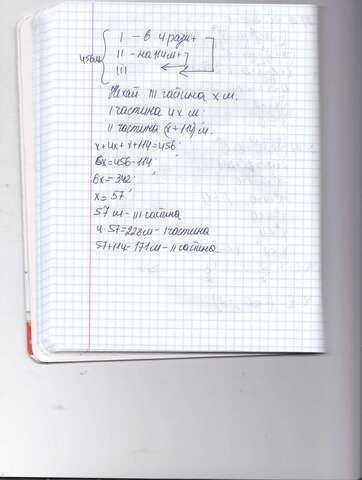 I - в 4 рази+
456м II - на 114м+
III
Нехай III частина x м.
I частина 4x м.
II частина (x+114) м.
x+4x+x+114=456
6x=456-114
6x=342
x=57
57м - III частина
4·57=228м - I частина
57+114=171м - II частина